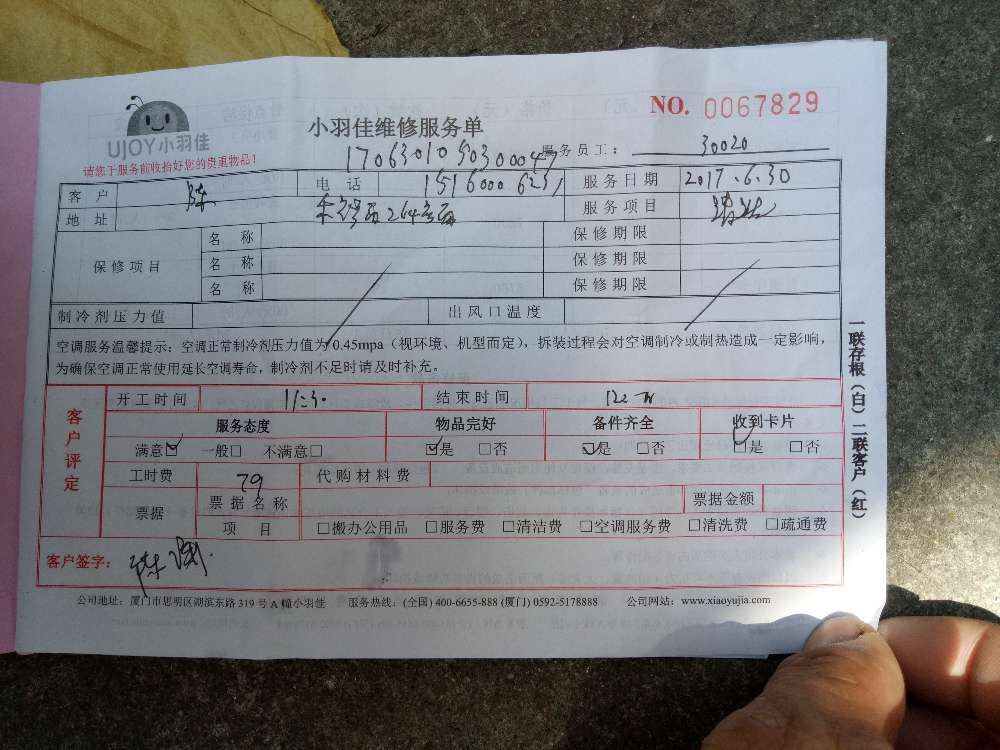 NO. 0067829
UJOY小羽佳
小羽佳维修服务单
请您于服务前收拾好您的贵重物品!
服务员工: 30020
客户 陈 电话 服务日期 2017.6.30
地址 服务项目 清洗
保修项目 名称 保修期限
名称 保修期限
名称 保修期限
制冷剂压力值 出风口温度
空调服务温馨提示:空调正常制冷剂压力值为0.45mpa(视环境、机型而定),拆装过程会对空调制冷或制热造成一定影响,
为确保空调正常使用延长空调寿命,制冷剂不足时请及时补充。
客户评定
开工时间 11:30 结束时间
服务态度 物品完好 备件齐全 收到卡片
满意☑ 一般□ 不满意□ ☑是 □否 ☑是 □否 ☑是 □否
工时费 79 代购材料费
票据 票据名称 票据金额
项目 □搬办公用品 □服务费 □清洁费 □空调服务费 □清洗费 □疏通费
客户签字:
公司地址:厦门市思明区湖滨东路319号A幢小羽佳 服务热线:(全国)400-6655-888 (厦门) 0592-5178888 公司网站:www.xiaoyujia.com
一联存根(白)二联客户(红)